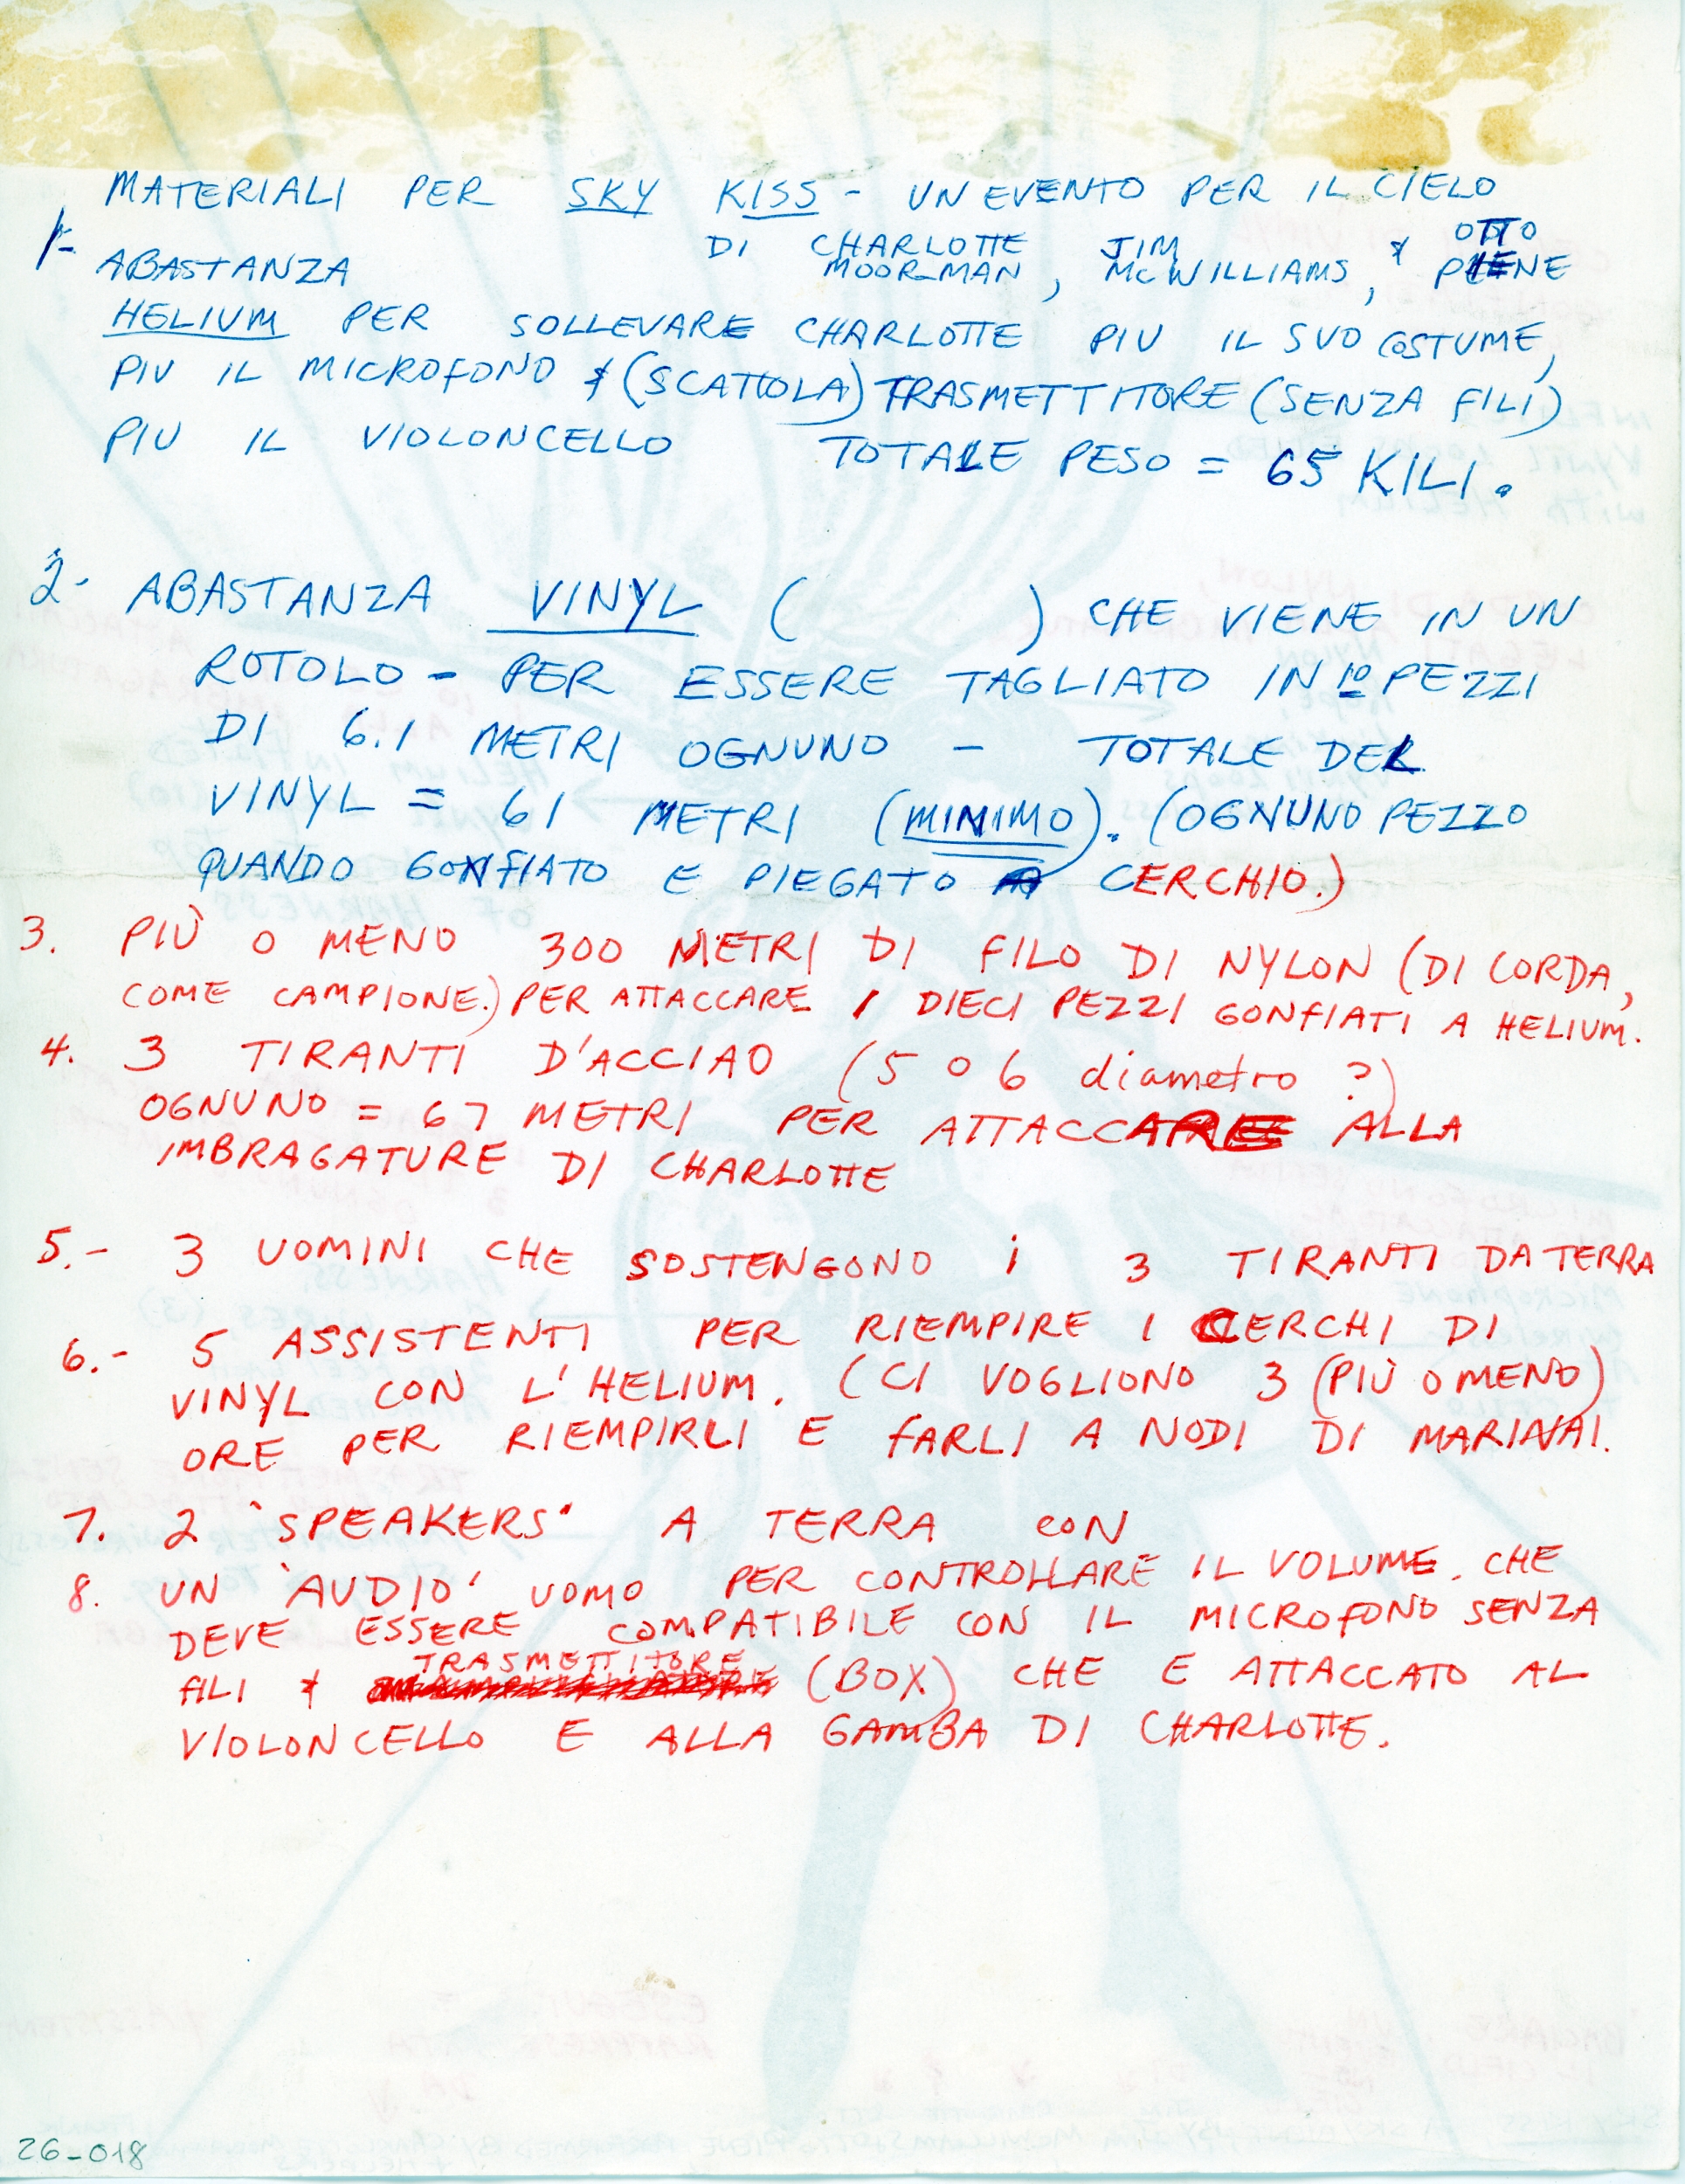 MATERIALI PER SKY KISS - UN EVENTO PER IL CIELO
DI CHARLOTTE MOORMAN, JIM McWILLIAMS, & OTTO PIENE
1- ABASTANZA
HELIUM PER SOLLEVARE CHARLOTTE PIU IL SUO COSTUME,
PIU IL MICROFONO & (SCATTOLA) TRASMETTITORE (SENZA FILI)
PIU IL VIOLONCELLO TOTALE PESO = 65 KILI.
2- ABASTANZA VINYL ( ) CHE VIENE IN UN
ROTOLO - PER ESSERE TAGLIATO IN 10 PEZZI
DI 6.1 METRI OGNUNO - TOTALE DEL
VINYL = 61 METRI (MINIMO). (OGNUNO PEZZO
QUANDO GONFIATO E PIEGATO A CERCHIO.)
3. PIÙ O MENO 300 METRI DI FILO DI NYLON (DI CORDA,
COME CAMPIONE.) PER ATTACCARE I DIECI PEZZI GONFIATI A HELIUM.
4. 3 TIRANTI D'ACCIAO (5 O 6 diametro ?)
OGNUNO = 67 METRI PER ATTACCARE ALLA
IMBRAGATURE DI CHARLOTTE
5.- 3 UOMINI CHE SOSTENGONO i 3 TIRANTI DA TERRA
6.- 5 ASSISTENTI PER RIEMPIRE I CERCHI DI
VINYL CON L'HELIUM. (CI VOGLIONO 3 (PIÙ O MENO)
ORE PER RIEMPIRLI E FARLI A NODI DI MARINAI.
7. 2 'SPEAKERS' A TERRA CON
8. UN 'AUDIO' UOMO PER CONTROLLARE IL VOLUME. CHE
DEVE ESSERE COMPATIBILE CON IL MICROFONO SENZA
FILI & TRASMETTITORE (BOX) CHE E ATTACCATO AL
VIOLONCELLO E ALLA GAMBA DI CHARLOTTE.
26-018